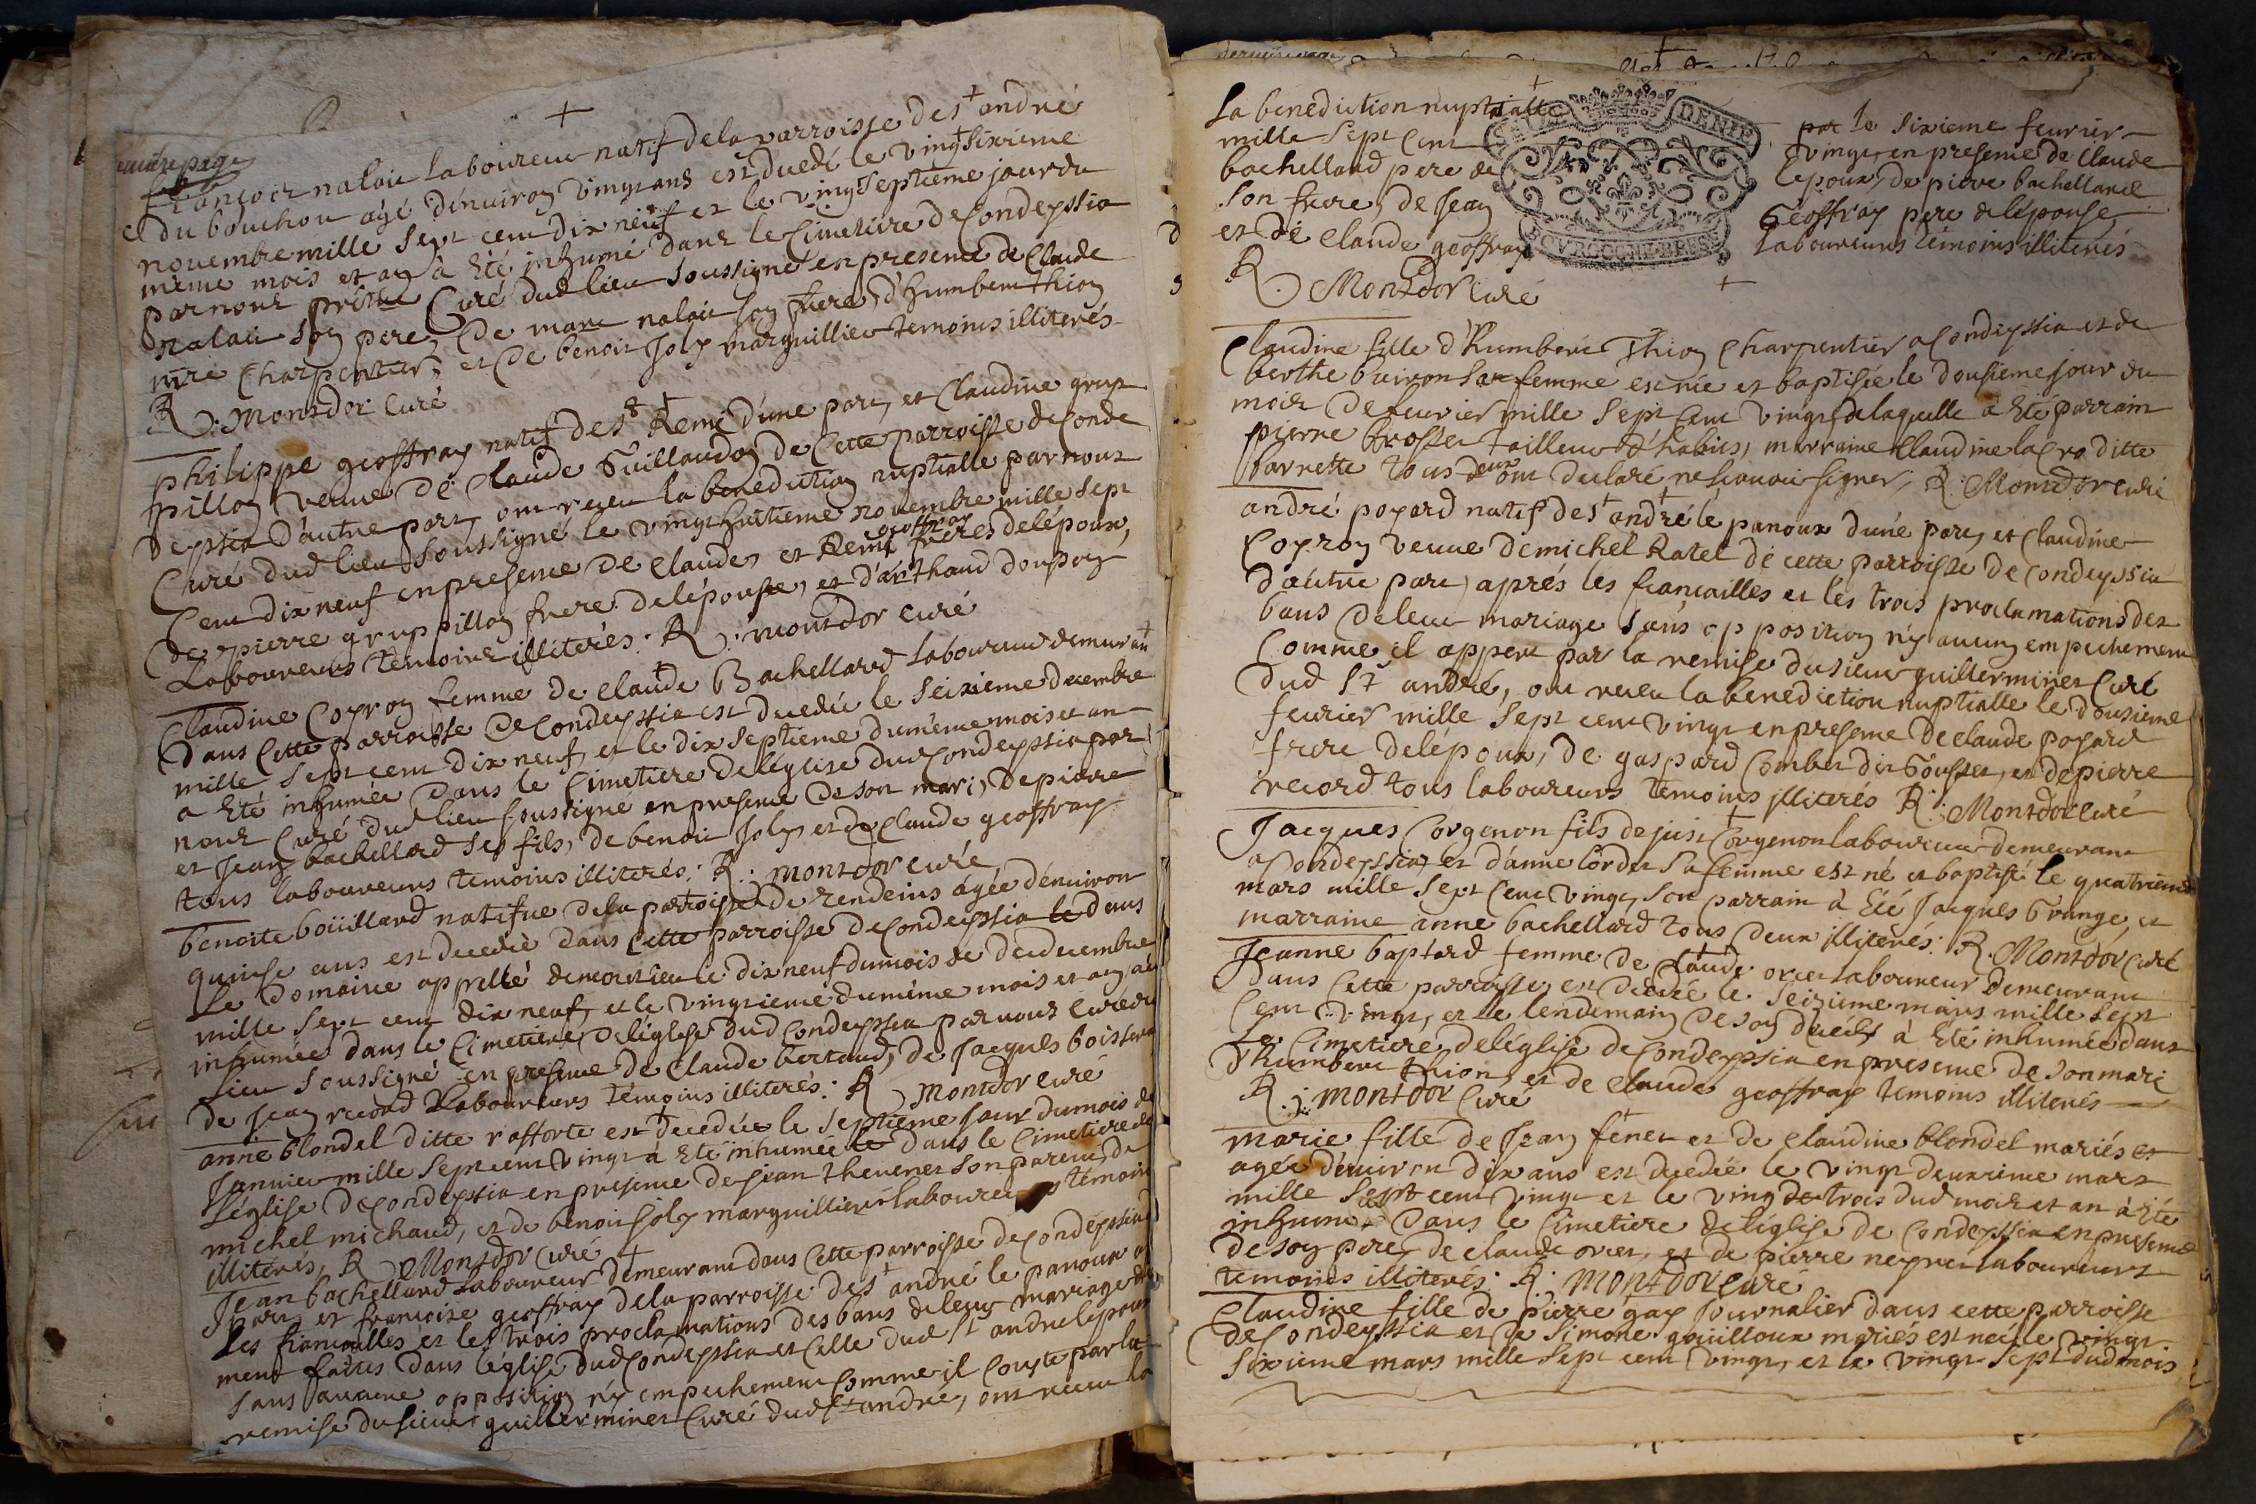 françois nalan laboureur natif dela parroisse de st andré
du bouchou agé d'enuiron vingt ans est decedé le vingt sixieme
nouembre mille sept cent dix neuf et le vingt septieme jour du
meme mois et an à été inhumé dans le cimetiere de condeyssia
par nous prêtre curé dud lieu soussigné en presence de claude
son pere, de marc son frere, d'humbert thion
charpentier, et de benoit joly marguillier temoins illiterés
R: montdor curé
philippe geoffray natif de st Remi d'une part, et claudine grup
pillon veuue de claude Guillaudon de cette parroisse de conde
yssia d'autre part, ont receu la benediction nuptialle par nous
curé dud lieu soussigné le vingt huitieme nouembre mille sept
cent dix neuf en presence de claude, et Remi geoffray freres de l'époux,
de pierre gruppillon frere de l'épouse, et d'arthaud donpon
laboureurs temoins illiterés: R: montdor curé
claudine coyron femme de claude Bachellard laboureur demeurant
dans cette parroisse de condeyssia est decedée le seizieme decembre
mille sept cent dix neuf, et le dix septieme du même mois et an
a été inhumée dans le cimetiere de l'eglise dud condeyssia par
nous curé dud lieu soussigné en presence de son mari, de pierre
et jean bachellard ses fils, de benoit joly et de claude geoffray
tous laboureurs temoins illiterés: R: montdor curé
benoite boüillard natifue de la parroisse de rendeins âgée d'enuiron
quinse ans est decedée dans cette parroisse de condeyssia le dans
le domaine appellé le dix neuf du mois de decembre
mille sept cent dix neuf, et le vingtieme du même mois et an a été
inhumée dans le cimetiere de l'eglise dud condeyssia par nous curé du
lieu soussigné en presence de claude bertaud, de jacques
de jean record laboureurs témoins illiterés: R: montdor curé
anne blondel ditte rafforte est decedée le septieme jour du mois de
januier mille sept cent vingt a été inhumée le dans le cimetiere de
l'église de condeyssia en presence de jean theuenet son parent, de
michel michaud, et de benoit joly marguillier laboureurs temoins
illiterés, R: Montdor curé
Jean bachellard laboureur demeurant dans cette parroisse de condeyssia d'une
part et francoise geoffray de la parroisse de st andré le panoux
les fiancailles et les trois proclamations des bans de leur mariage
ment faites dans l'église dud condeyssia et celle dud st andré le panoux
sans aucune opposition n'y empechement comme il conste par la
remise du sieur guillerminet curé dud st andré, ont receu la
la benediction nuptialle par le sixieme feurier
mille sept cent vingt, en presence de claude
bachellard pere de l'époux, de pierre bachellard
son frere, de jean Geoffray pere de l'épouse,
et de claude geoffray laboureurs témoins illiterés
R: Montdor curé
claudine fille d'humbert thion charpentier a condeyssia et de
berthe buiron sa femme est née et baptisée le dousieme jour du
mois de feurier mille sept cent vingt, de laquelle a été parrain
pierre brosset tailleur d'habits, marraine claudine lacra ditte
barnette tous deux ont declaré ne scauoir signer, R: Montdor curé
andré poyard natif de st andré le panoux d'une part, et claudine
coyron veuue de michel Ratel de cette parroisse de condeyssia
d'autre part, aprés les fiancailles et les trois proclamations des
bans de leur mariage sans opposition n'y aucun empechement
comme il appert par la remise du sieur guillerminet curé
dud st andré, ont receu la benediction nuptialle le dousieme
feurier mille sept cent vingt en presence de claude poyard
frere de l'époux, de gaspard combet dit Gousset, et de pierre
record tous laboureurs témoins illiterés R: Montdor curé
Jacques corgenon fils de just corgenon laboureur demeurant
a condeyssia, et d'anne cordet sa femme est né et baptisé le quatrieme
mars mille sept cent vingt, son parrain à été Jacques Grange, et
marraine anne bachellard tous deux illiterés: R. Montdor curé
Jeanne baptard femme de claude orcet laboureur demeurant
dans cette parroisse, est decedée le seizieme mars mille sept
cent vingt, et le lendemain de son decés à été inhumée dans
le cimetiere de l'église de condeyssia en presence de son mari
d'humbert thion, et de claude geoffray temoins illiterés
R: montdor curé
marie fille de jean fenet et de claudine blondel mariés et
agée d'enuiron dix ans est decedée le vingt deuxieme mars
mille sept cent vingt et le vingt et trois dud mois et an à été
inhumée dans le cimetiere de l'église de condeyssia en presence
de son pere, de claude orcet, et de pierre neyret laboureurs
temoins illiterés: R: montdor curé
claudine fille de pierre gay journalier dans cette parroisse
de condeyssia et de simone guilloux mariés est née le vingt
sixieme mars mille sept cent vingt, et le vingt sept dud mois